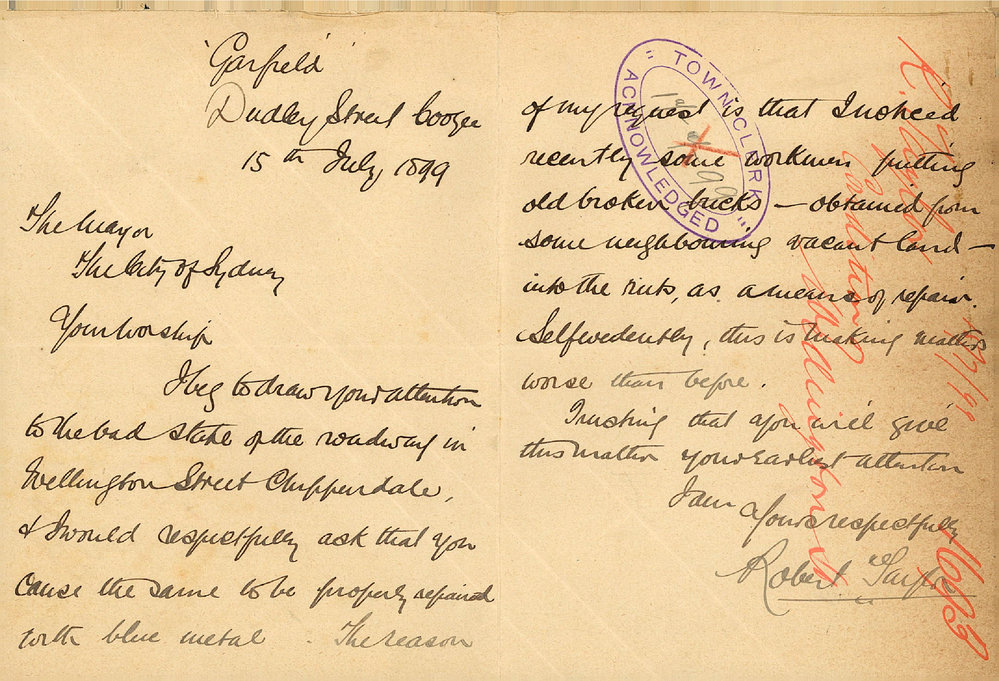 'Garfield'
Dudley Street Coogee
15th July, 1899
The Mayor
The City of Sydney
Your Worship
I beg to draw your attention
to the bad state of the roadway in
Wellington Street Chippendale,
& I would respectfully ask that you
cause the same to be properly repaired
with blue metal. The reason
of my request is that I noticed
recently some workmen putting
old broken bricks — obtained from
some neighbouring vacant land —
into the ruts, as a means of repair.
Selfevidently, this is making matters
worse than before.
Trusting that you will give
this matter your earliest attention
I am Yours respectfully
Robert
TOWN CLERK
ACKNOWLEDGED
99
Condition of
Wellington St
17/7/99